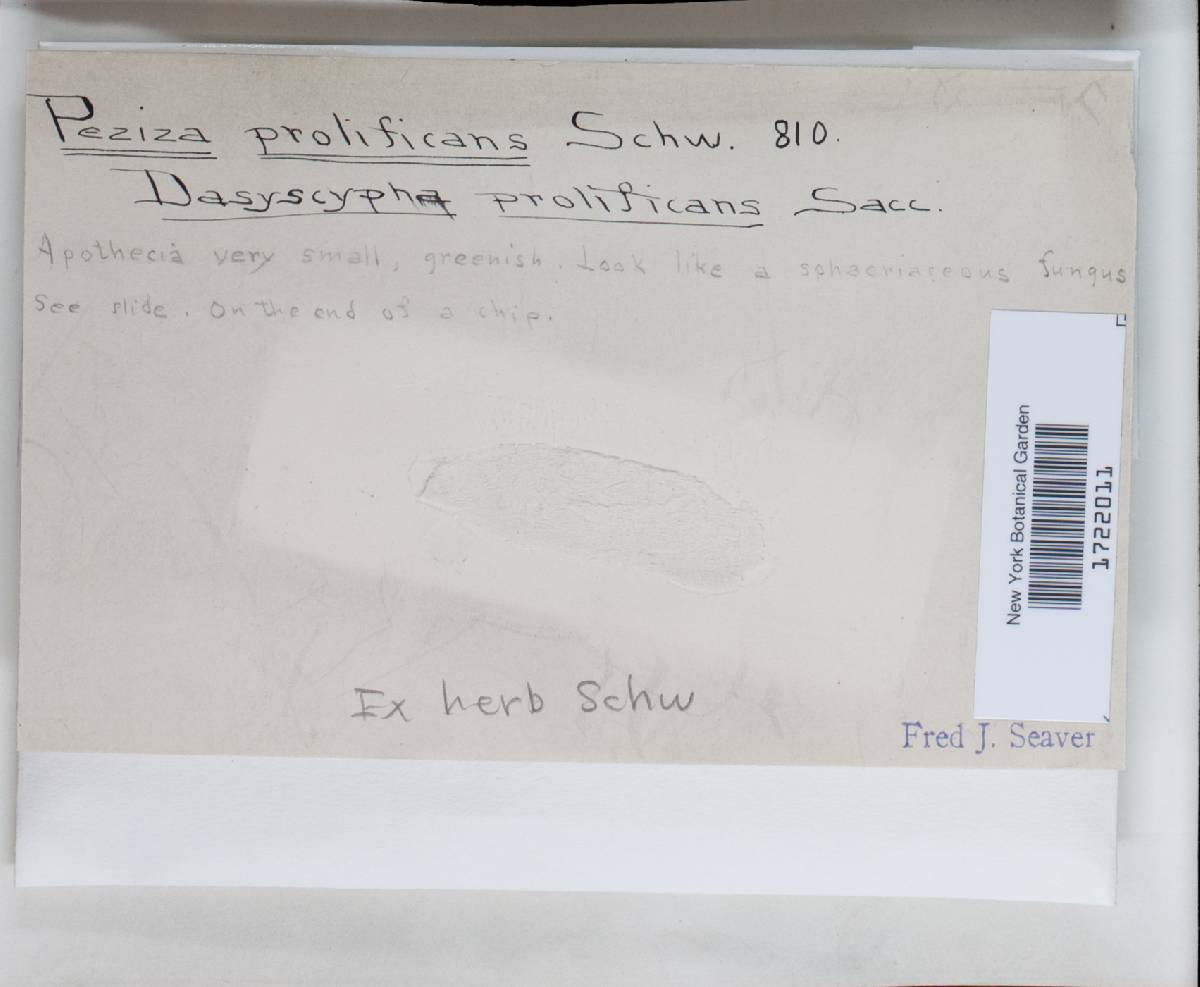 Peziza prolificans Schw. 810.
Dasyscypha prolificans Sacc.
Apothecia very small, greenish. Look like a sphaeriaceous fungus
See slide. On the end of a chip.
New York Botanical Garden
1722011
Ex herb Schw
Fred J. Seaver